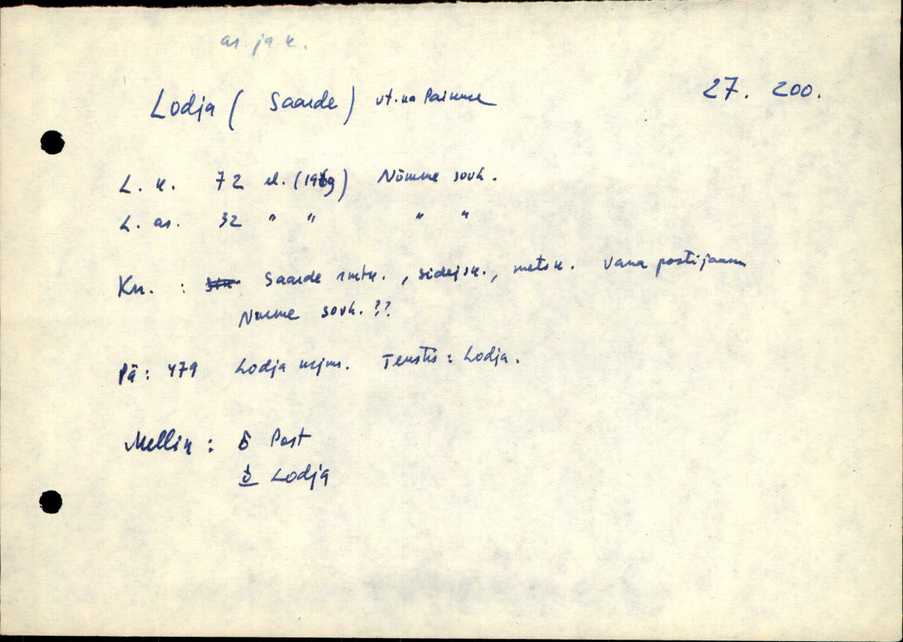 as. ja k.
Lodja ( Saarde ) vt. ka Paikuse 27. 200.
L. k. 72 el. (1969) Nõmme sovh.
L. as. 32 " " " "
Kn. : Saarde smtk., sidejsk., metsk. vana postijaam
Nõmme sovh. ??
Pä : 479 Lodja mjms. Tekstis : Lodja.
Mellin : Post
Lodja